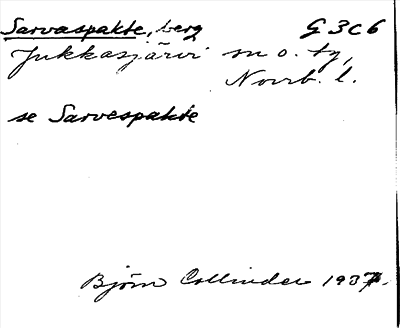 Sarvaspakte, berg G 3 c 6
Jukkasjärvi sn o. tg,
Norrb. l.
se Sarvespakte
Björn Collinder 1937.